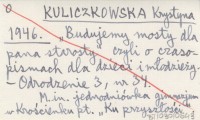 KULICZKOWSKA Krystyna
1946. "Budujemy mosty dla
pana starosty" czyli o czaso-
pismach dla dzieci i młodzieży.
- Odrodzenie 3, nr 34
M.in. jednodniówka gimnazjum
w Krościenku pt. "Ku przyszłości"